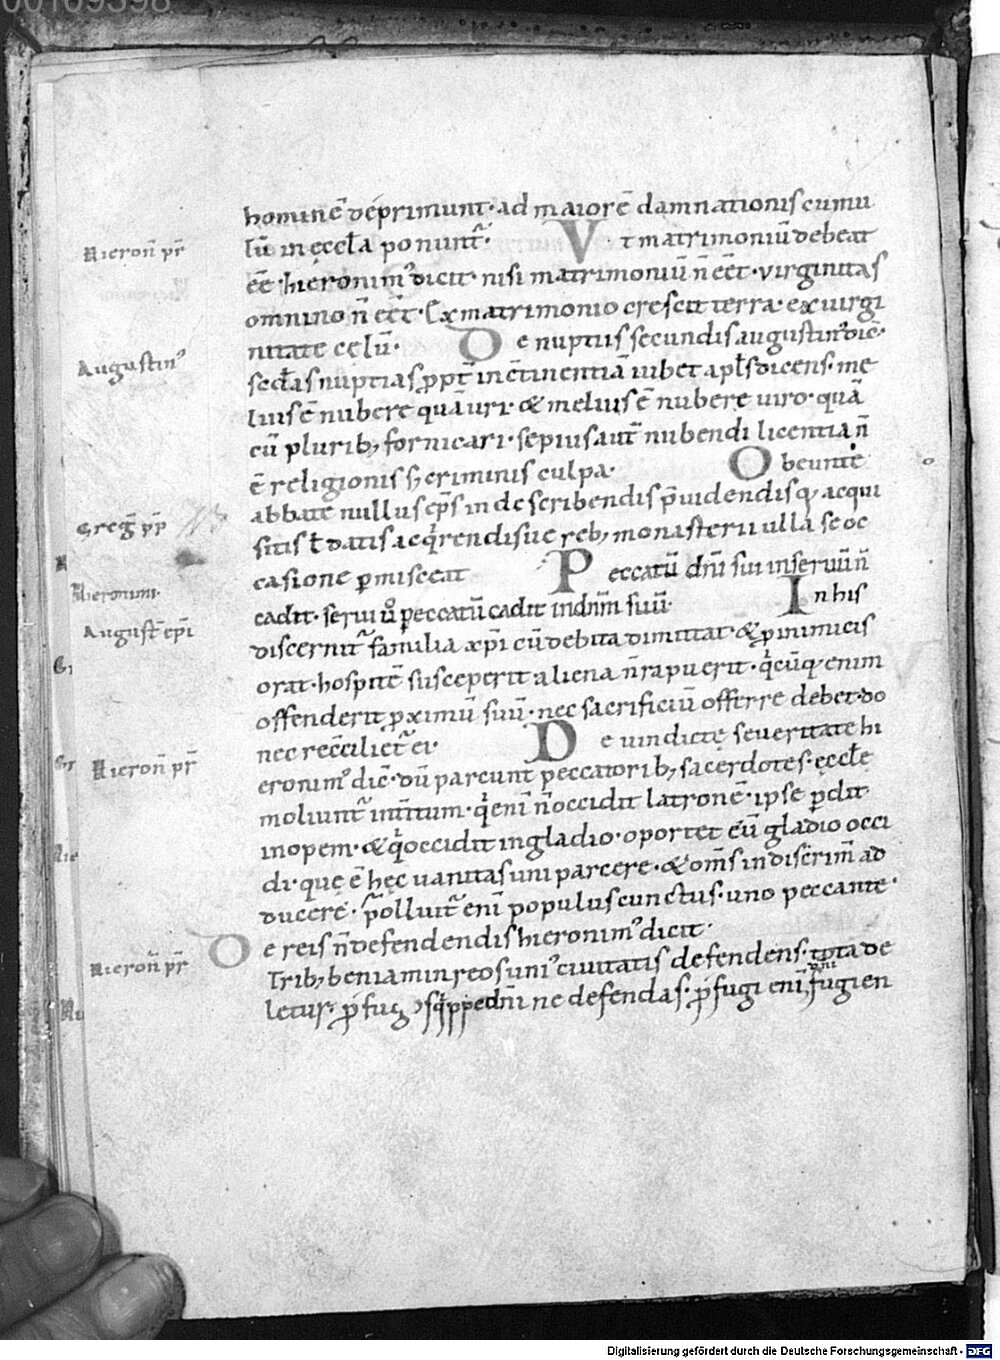 00109398
hominē deprimunt· ad maiorē damnationis cumu
Hieron̄ pr̄
lū in ęccl̄a ponunt᷑· Vt matrimoniū debeat
ēē· hieronimꝰ dicit· nisi matrimoniū n̄ eēt· virginitas
omnino n̄ eēt· Ex matrimonio crescit terra· ex virgi
nitate cęlū· De nuptiis secundis augustinꝰ dic̄·
Augustinꝰ
secd̄as nuptias ꝓpt̄ incōtinentiā iubet apl̄s dicens· me
lius ē nubere quā uri· & melius ē nubere uiro· quā
cū pluribꝫ fornicari· sepius aut̄ nubendi licentia n̄
ē religionis sꝫ criminis culpa· Obeunte
abbate nullus ep̄s in describendis p̄uidendisqꝫ acqui
Greg̅ pp̄
sitis ł datis acq̇rendisue rebꝫ monasterii ulla se oc
casione ꝑmisceat Peccatū dn̄i sui in seruū n̄
Hieronimi·
cadit· serui ů peccatū cadit in dn̄m suū· In his
August̄ ep̄i
discernit᷑ familia xp̄i cū debita dimittat· & ꝓ inimicis
orat· hospitē susceperit aliena n̄ rapuerit· q̇cūqꝫ enim
offenderit ꝓximū suū· nec sacrificiū offerre debet· do
nec recc̄iliet᷑ ei· De uindictę seueritate hi
Hieron̄ pr̄
eronimꝰ dic̄· dū parcunt peccatoribꝫ sacerdotes· ęccl̄ę
moliunt᷑ int̄itum· q̇ eni n̄ occidit latronē· ipse ꝑdit
inopem· & q̇ occidit in gladio· oportet eū gladio occi
di· quę ē hęc uanitas uni parcere· & om̄s in discrim̄ ad
ducere· p̄olluit᷑ eni populus cunctus· uno peccante·
De reis n̄ defendendis hieronimꝰ dicit·
Hieron̄ pr̄
Tribꝫ beniamin reos uniꝰ ciuitatis defendens· tota de
letur· ne defendas· ꝓfugi eni dn̄i fugi en
Digitalisierung gefördert durch die Deutsche Forschungsgemeinschaft - DFG